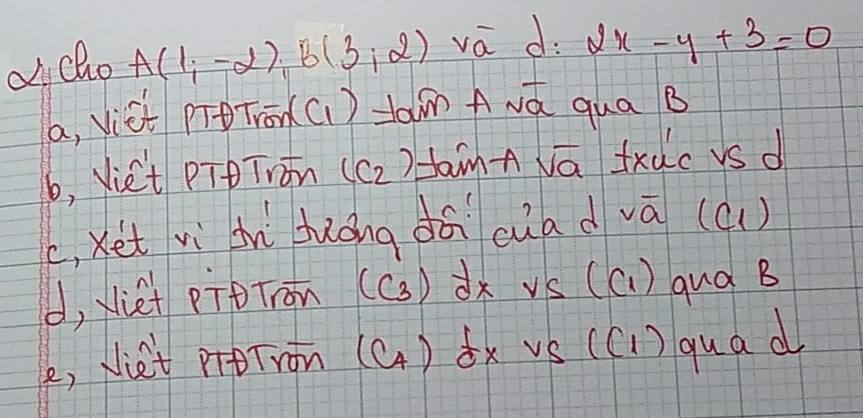 2, Cho A(1; -2), B(3; 2) và d: 2x - y + 3 = 0
a, Viết PTĐTròn (C1) tâm A và qua B
b, Viết PTĐTròn (C2) tâm A và txúc vs d
c, Xét vị trí tương đối của d và (C1)
d, Viết PTĐTròn (C3) đx vs (C1) qua B
e, Viết PTĐTròn (C4) đx vs (C1) qua d